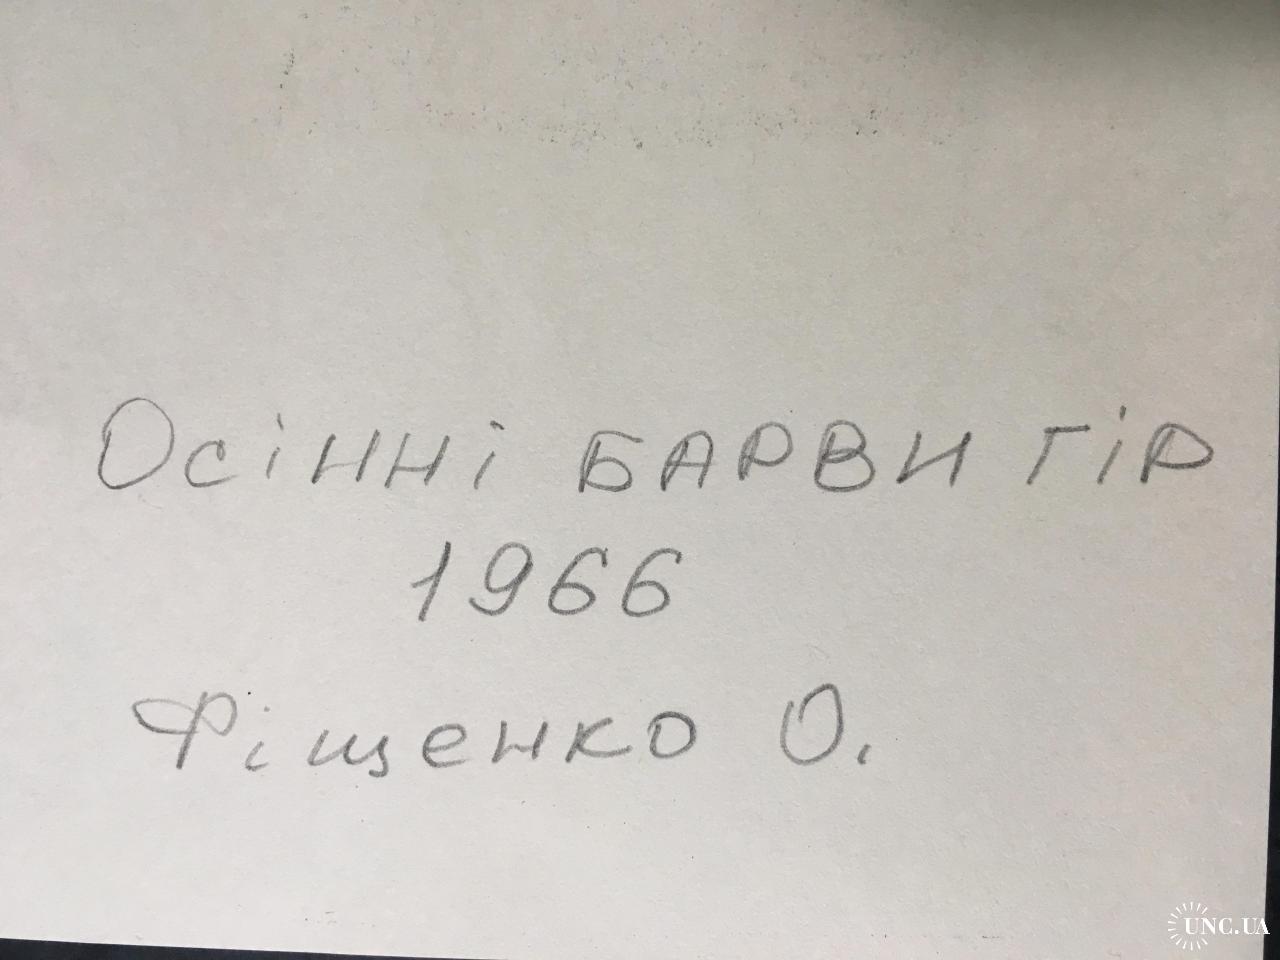 Осінні БАРВИ гір
1966
Фіщенко О.
UNC.UA